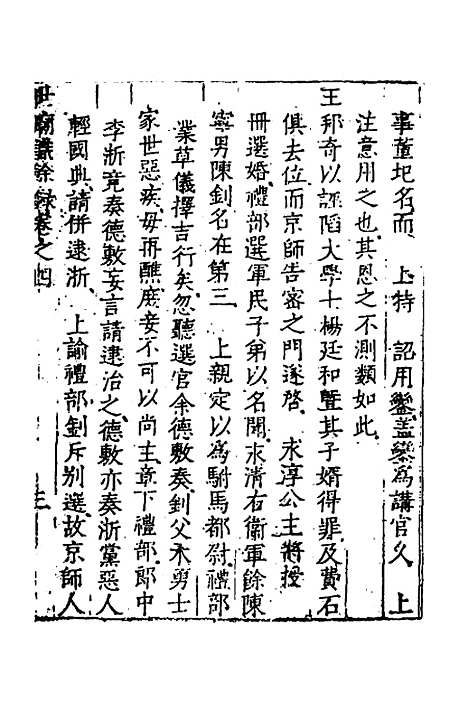 事董玘名而　上特　詔用鑾蓋欒為講官久　上
注意用之也其恩之不測類如此
王邦奇以誣謟大學士楊廷和暨其子婿得罪及費石
俱去位而京師告密之門遂啓　永淳公主將授
冊選婚禮部選軍民子弟以名聞永清右衞軍餘陳
寧男陳釗名在第三　上親定以為駙馬都尉禮部
業草儀擇吉行矣忽聽選官余德敷奏釗父永勇士
家世惡疾母再醮庶妾不可以尚主章下禮部郎中
李浙竟奏德敷妄言請逮治之德敷亦奏浙黨惡人
輕國典請併逮浙　上諭禮部釗斥别選故京師人
世廟識餘錄卷之四